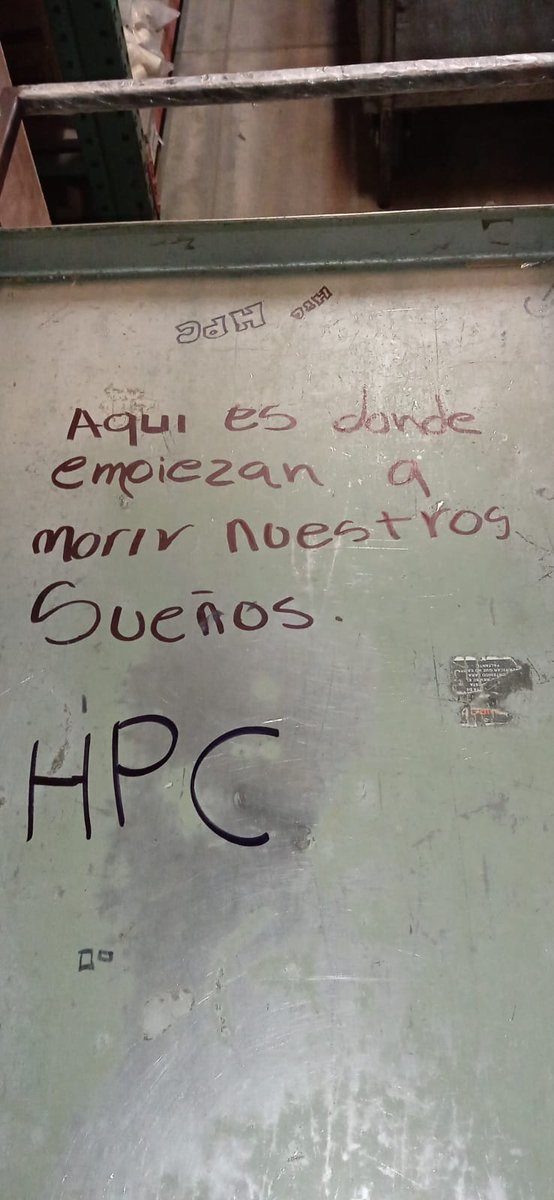 HPC HPC
Aqui es donde
empiezan a
morir nuestros
Sueños.
HPC